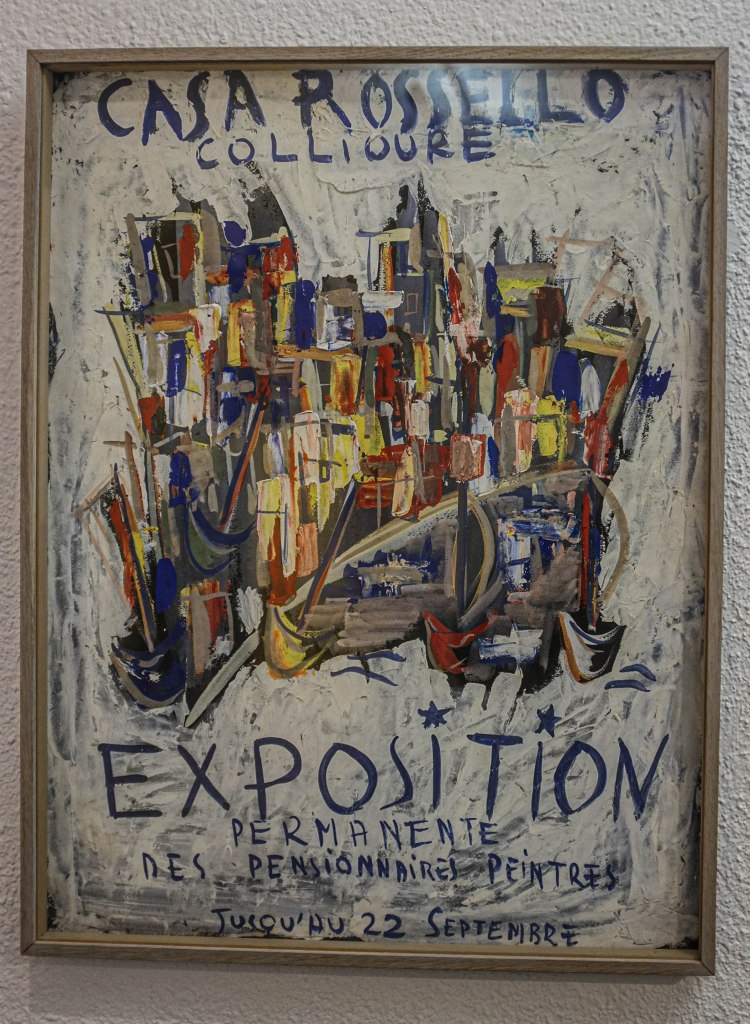 CASA ROSSELLO
COLLIOURE
EXPOSITION
PERMANENTE
DES PENSIONNAIRES PEINTRES
JUSQU'AU 22 SEPTEMBRE